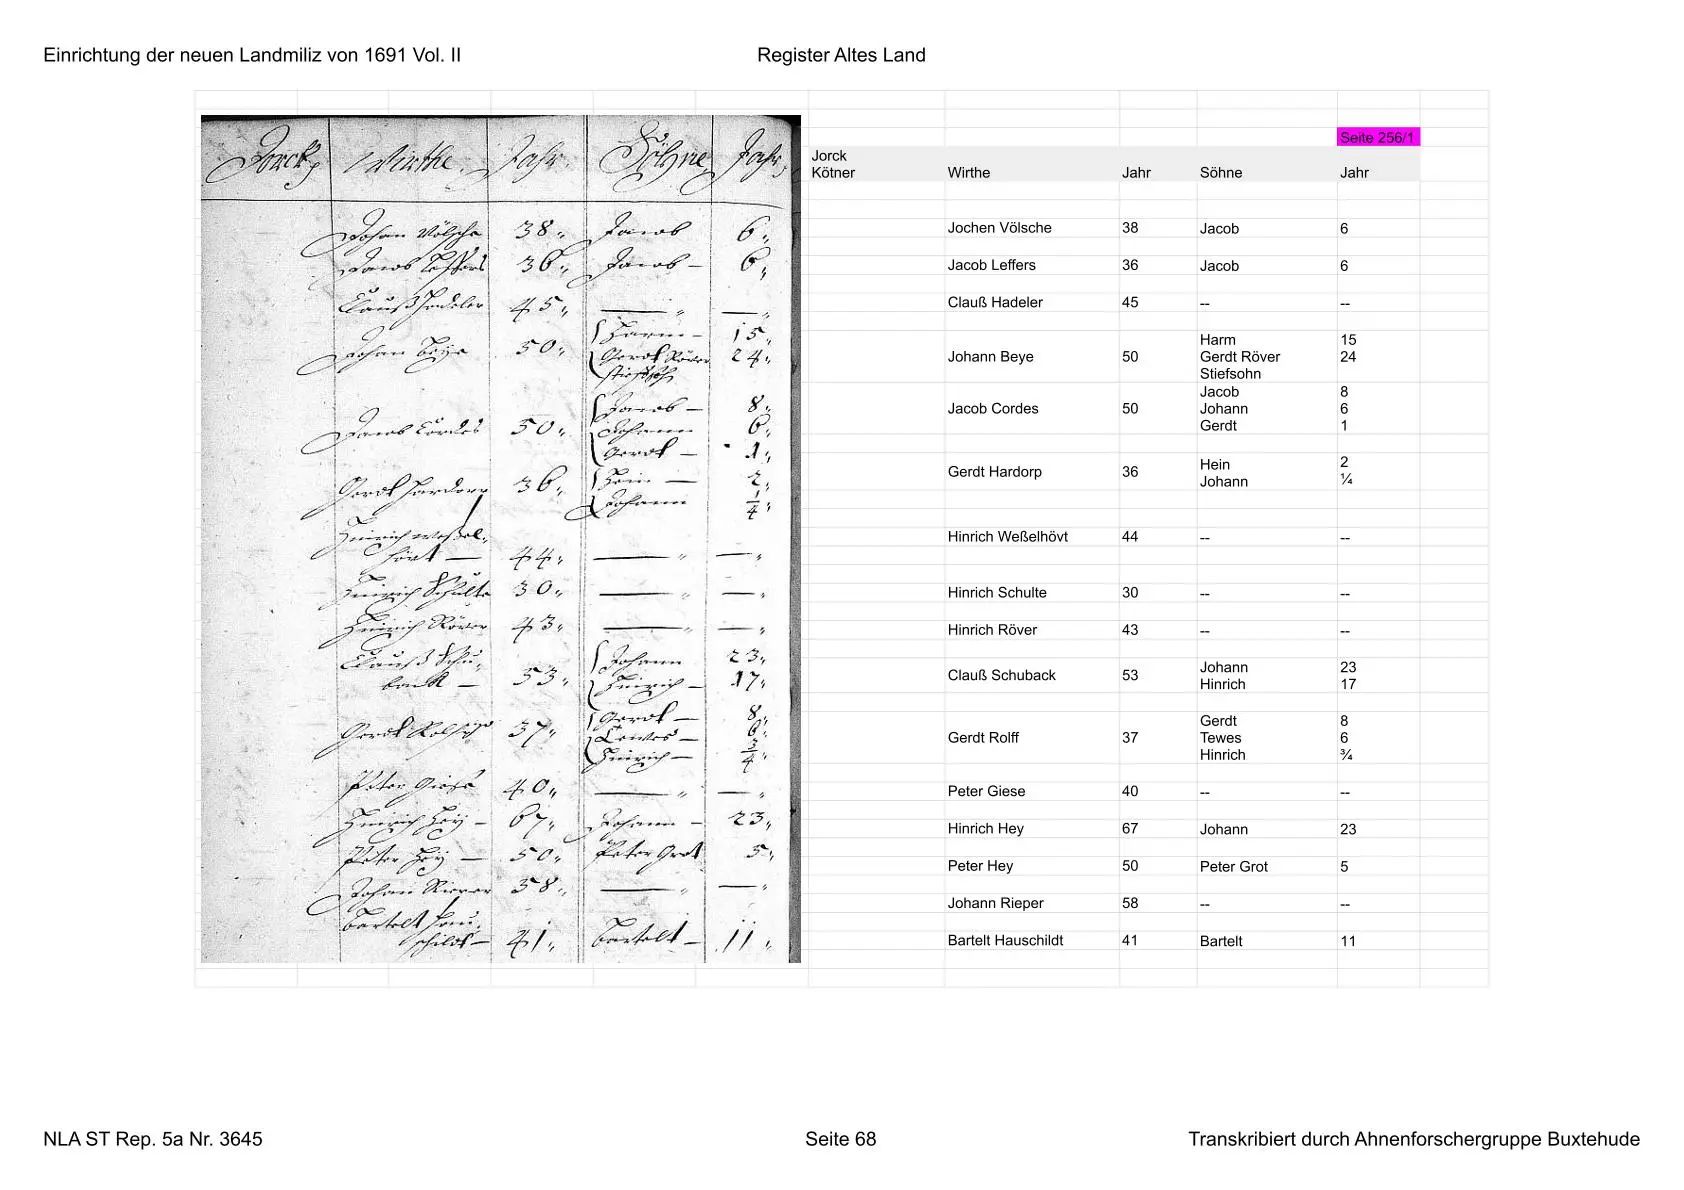 Einrichtung der neuen Landmiliz von 1691 Vol. II
Register Altes Land
Jorck Wirthe. Jahr. Söhne Jahr,
Johan Völsche 38 Jacob 6
Jacob Leffers 36 Jacob – 6
Clauß Hadeler 45 — —
Johan Beye 50 Harm – 15
Gerdt Röver 24
stiefsohn
Jacob Cordes 50 Jacob – 8
Johann 6
Gerdt – 1
Gerdt Hardorp 36 Hein — 2
Johann 1/4
Hinrich weßel-
hövt — 44 — —
Hinrich Schulte 30 — —
Hinrich Röver 43 — —
Clauß Schu-
back — 53 Johann 23
Hinrich – 17
Gerdt 37 Gerdt – 8
Tewes – 6
Hinrich – 3/4
Peter Giese 40 — —
Hinrich Hey – 67 Johann – 23
Peter Hey — 50 Peter Grot 5
Johan Rieper 58 — —
Bartelt Hau-
schildt – 41 Bartelt – 11
Seite 256/1
Jorck
Kötner Wirthe Jahr Söhne Jahr
Jochen Völsche 38 Jacob 6
Jacob Leffers 36 Jacob 6
Clauß Hadeler 45 -- --
Harm 15
Johann Beye 50 Gerdt Röver 24
Stiefsohn
Jacob 8
Jacob Cordes 50 Johann 6
Gerdt 1
Gerdt Hardorp 36 Hein 2
Johann ¼
Hinrich Weßelhövt 44 -- --
Hinrich Schulte 30 -- --
Hinrich Röver 43 -- --
Clauß Schuback 53 Johann 23
Hinrich 17
Gerdt 8
Gerdt Rolff 37 Tewes 6
Hinrich ¾
Peter Giese 40 -- --
Hinrich Hey 67 Johann 23
Peter Hey 50 Peter Grot 5
Johann Rieper 58 -- --
Bartelt Hauschildt 41 Bartelt 11
NLA ST Rep. 5a Nr. 3645
Seite 68
Transkribiert durch Ahnenforschergruppe Buxtehude